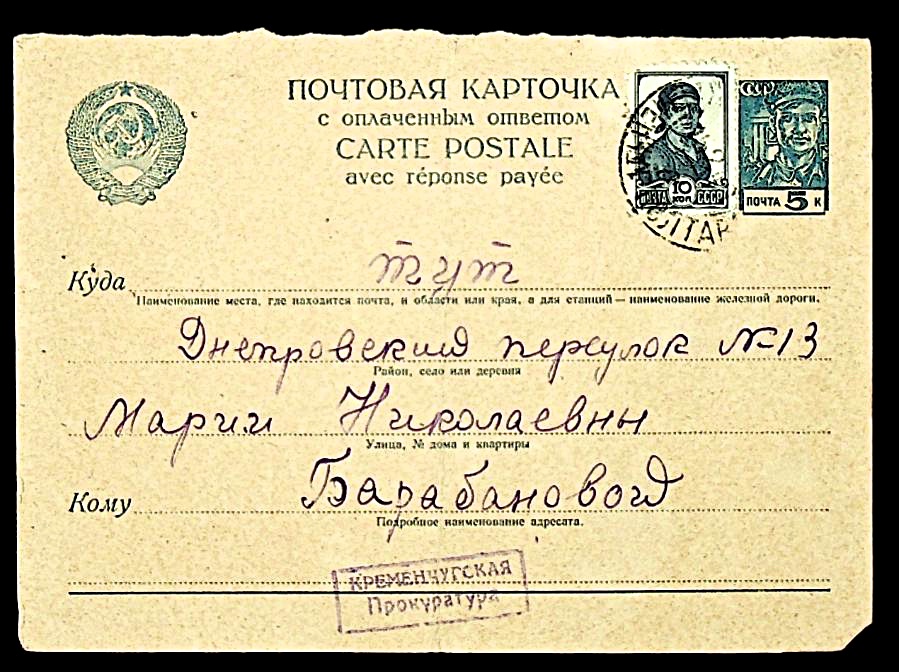 ПОЧТОВАЯ КАРТОЧКА
с оплаченным ответом
CARTE POSTALE
avec réponse payée
10 КОП
ПОЧТА СССР
СССР
ПОЧТА 5 К
Куда тут
Наименование места, где находится почта, и области или края, а для станций — наименование железной дороги.
Днепровский переулок №13
Район, село или деревня
Марии Николаевны
Улица, № дома и квартиры
Кому Барабановой
Подробное наименование адресата.
КРЕМЕНЧУГСКАЯ
Прокуратура